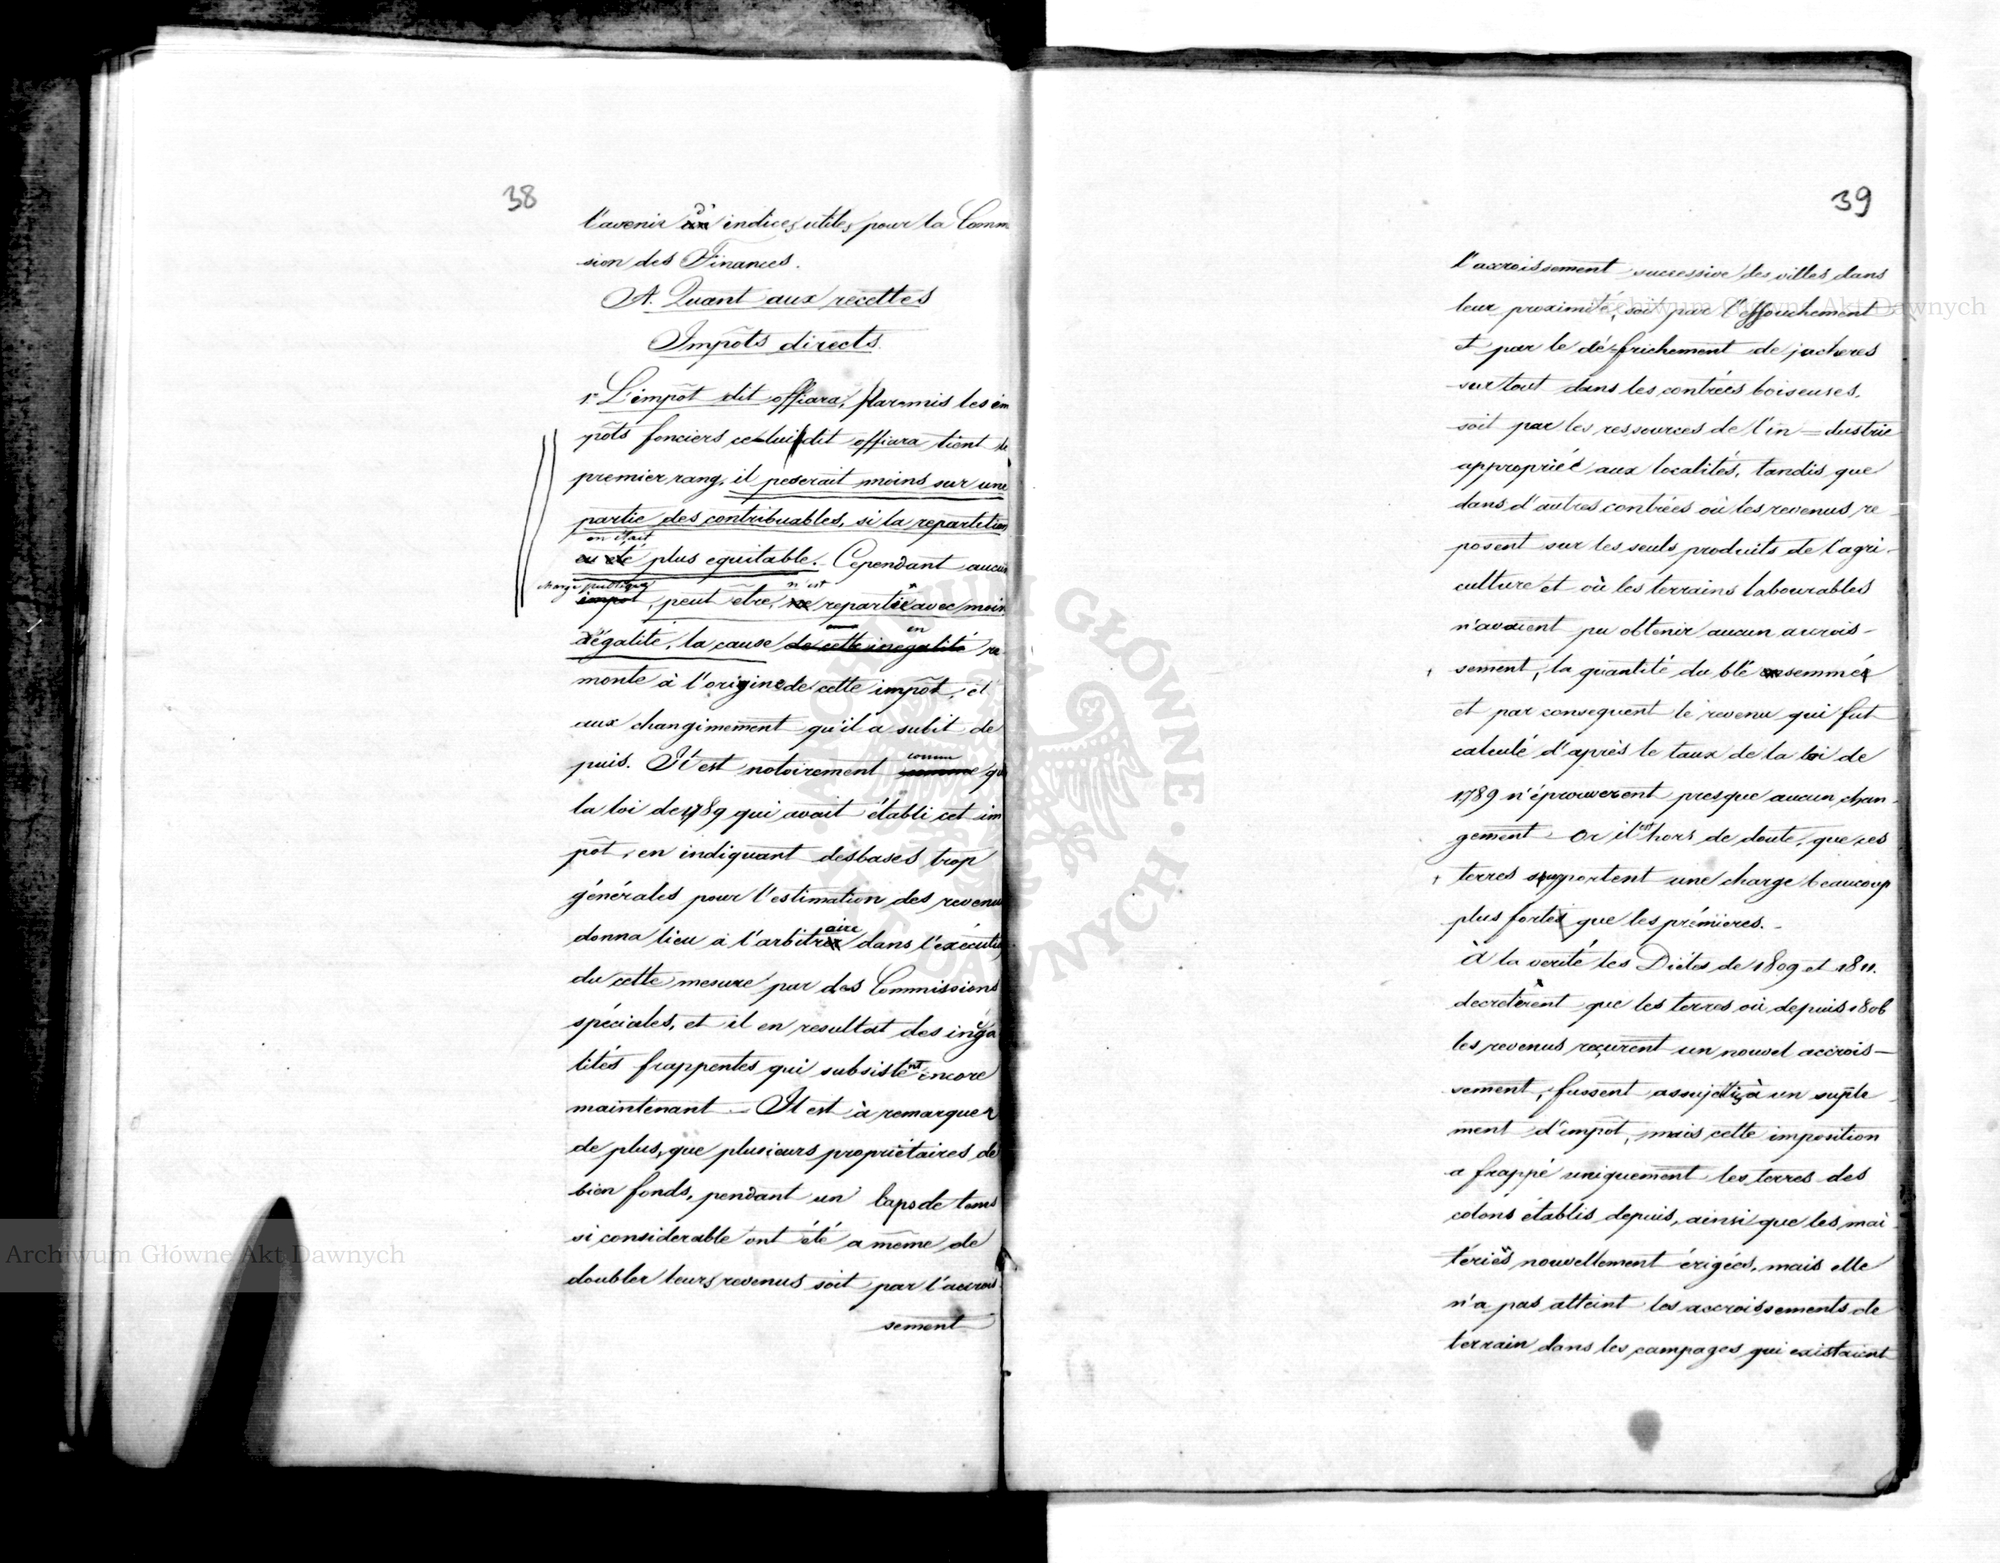 38
l'avenir d' indices utiles pour la Comm
sion des Finances.
A. Quant aux recettes
Impôts directs.
1º L'impôt dit offiara, Parmis les im
pôts fonciers celui dit offiara tient le
premier rang, il peserait moins sur une
partie des contribuables, si la repartition
en était
eu été plus equitable. Cependant aucun
charge publique n'est
impot, peut être, ne repartie avec moin
d'égalité, la cause de cette inegalité re
en
monte à l'origine de cette impôt, et
aux changiment qu'il a subit de
puis. Il est notoirement comme que
connu
la loi de 1789 qui avait établi cet im
pôt, en indiquant des bases trop
générales pour l'estimation des revenu
donna lieu à l'arbitraire dans l'exécution
du cette mesure par des Commissions
spéciales, et il en resultat des inéga
lités frappentes qui subsistent encore
maintenant – Il est à remarquer
de plus, que plusieurs propriétaires de
bien fonds, pendant un laps de tems
si considerable ont été a même de
doubler leurs revenus soit par l'accrois
sement
39
l'accroissement successive des villes dans
leur proximité, soit par l'effouchement
et par le dé=frichement de jacheres
sur tout dans les contrées boiseuses,
soit par les ressources de l'in=dustrie
appropriée aux localités, tandis que
dans d'autres contrées où les revenus re
posent sur les seuls produits de l'agri-
culture et où les terrains labourables
n'avaient pu obtenir aucun accrois-
sement, la quantité du blé ensemmée
et par consequent le revenu qui fut
calculé d'après le taux de la loi de
1789 n'éprouverent presque aucun chan-
gement – Or il est hors de doute, que ces
terres supportent une charge beaucoup
plus fortes que les prémieres. -
À la verité les Diètes de 1809 et 1811.
decretèrent que les terres où depuis 1806
les revenus reçurent un nouvel accrois-
sement, fussent assujetties à un suple
ment d'impot, mais cette imposition
a frappé uniquement les terres des
colons établis depuis, ainsi que les mai
téries nouvellement érigées, mais elle
n'a pas atteint les accroissements de
terrain dans les campages qui existaient
Archiwum Główne Akt Dawnych
Archiwum Główne Akt Dawnych
ARCHIWUM GŁÓWNE · AKT DAWNYCH ·